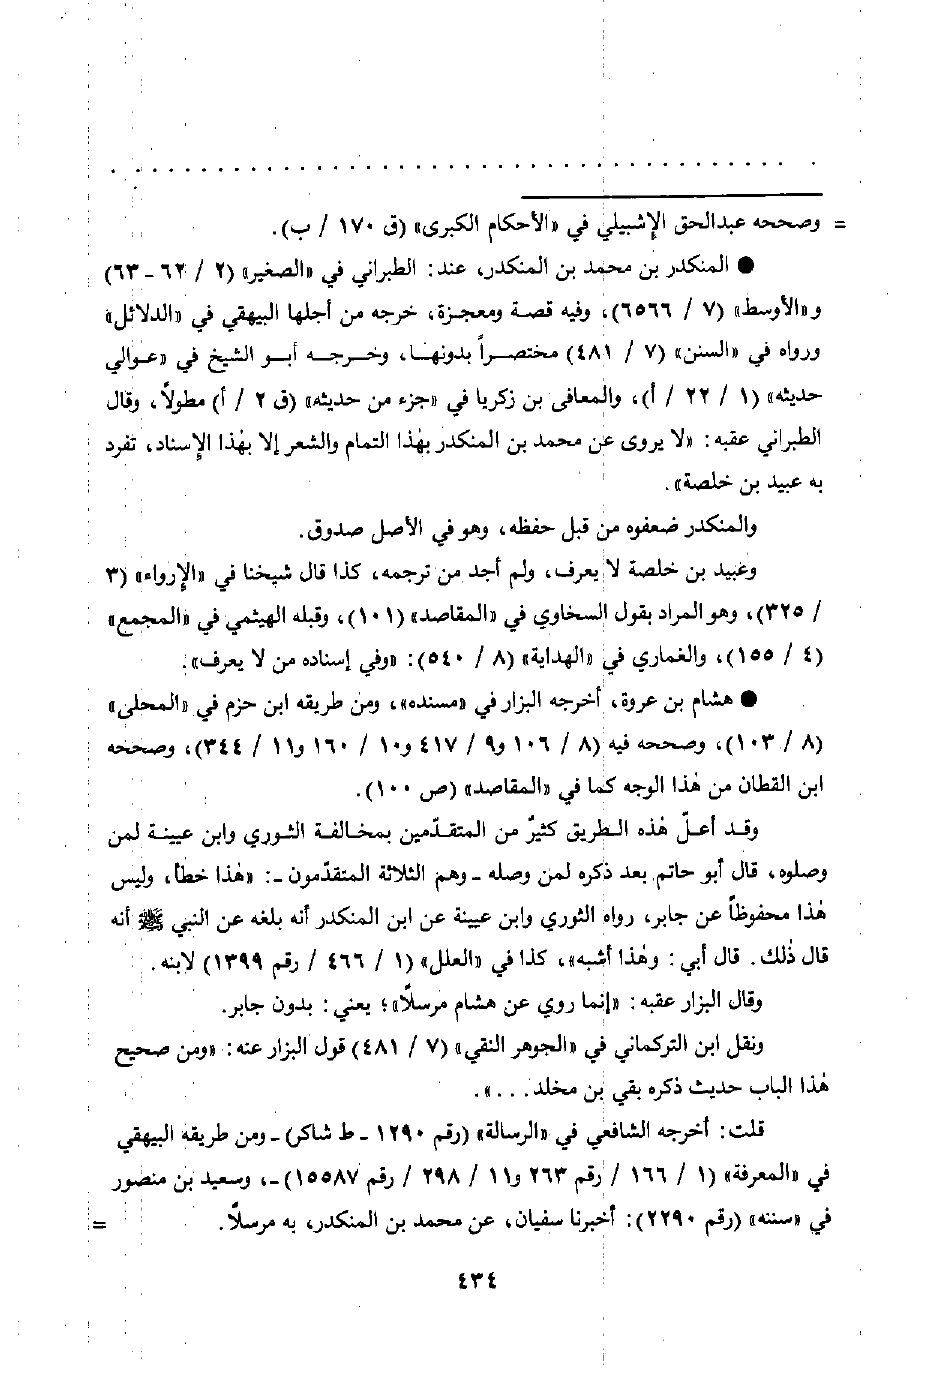 = وصححه عبدالحق الإشبيلي في «الأحكام الكبرى» (ق ١٧٠ / ب).
● المنكدر بن محمد بن المنكدر، عند: الطبراني في «الصغير» (٢ / ٦٢ ـ ٦٣)
و«الأوسط» (٧ / ٦٥٦٦)، وفيه قصة ومعجزة، خرجه من أجلها البيهقي في «الدلائل»
ورواه في «السنن» (٧ / ٤٨١) مختصراً بدونها، وخرجه أبو الشيخ في «عوالي
حديثه» (١ / ٢٢ / أ)، والمعافى بن زكريا في «جزء من حديثه» (ق ٢ / أ) مطولاً، وقال
الطبراني عقبه: «لا يروى عن محمد بن المنكدر بهٰذا التمام والشعر إلا بهٰذا الإسناد، تفرد
به عبيد بن خلصة».
والمنكدر ضعفوه من قبل حفظه، وهو في الأصل صدوق.
وعبيد بن خلصة لا يعرف، ولم أجد من ترجمه، كذا قال شيخنا في «الإرواء» (٣
/ ٣٢٥)، وهو المراد بقول السخاوي في «المقاصد» (١٠١)، وقبله الهيثمي في «المجمع»
(٤ / ١٥٥)، والغماري في «الهداية» (٨ / ٥٤٠): «وفي إسناده من لا يعرف».
● هشام بن عروة، أخرجه البزار في «مسنده»، ومن طريقه ابن حزم في «المحلى»
(٨ / ١٠٣)، وصححه فيه (٨ / ١٠٦ و٩ / ٤١٧ و١٠ / ١٦٠ و١١ / ٣٤٤)، وصححه
ابن القطان من هٰذا الوجه كما في «المقاصد» (ص ١٠٠).
وقد أعلّ هٰذه الطريق كثيرٌ من المتقدّمين بمخالفة الثوري وابن عيينة لمن
وصلوه، قال أبو حاتم بعد ذكره لمن وصله ـ وهم الثلاثة المتقدّمون ـ: «هٰذا خطأ، وليس
هٰذا محفوظاً عن جابر، رواه الثوري وابن عيينة عن ابن المنكدر أنه بلغه عن النبي ﷺ أنه
قال ذٰلك. قال أبي: وهٰذا أشبه»، كذا في «العلل» (١ / ٤٦٦ / رقم ١٣٩٩) لابنه.
وقال البزار عقبه: «إنما روي عن هشام مرسلاً»؛ يعني: بدون جابر.
ونقل ابن التركماني في «الجوهر النقي» (٧ / ٤٨١) قول البزار عنه: «ومن صحيح
هٰذا الباب حديث ذكره بقي بن مخلد...».
قلت: أخرجه الشافعي في «الرسالة» (رقم ١٢٩٠ ـ ط شاكر) ـ ومن طريقه البيهقي
في «المعرفة» (١ / ١٦٦ / رقم ٢٦٣ و١١ / ٢٩٨ / رقم ١٥٥٨٧) ـ، وسعيد بن منصور
في «سننه» (رقم ٢٢٩٠): أخبرنا سفيان، عن محمد بن المنكدر، به مرسلاً. =
٤٣٤